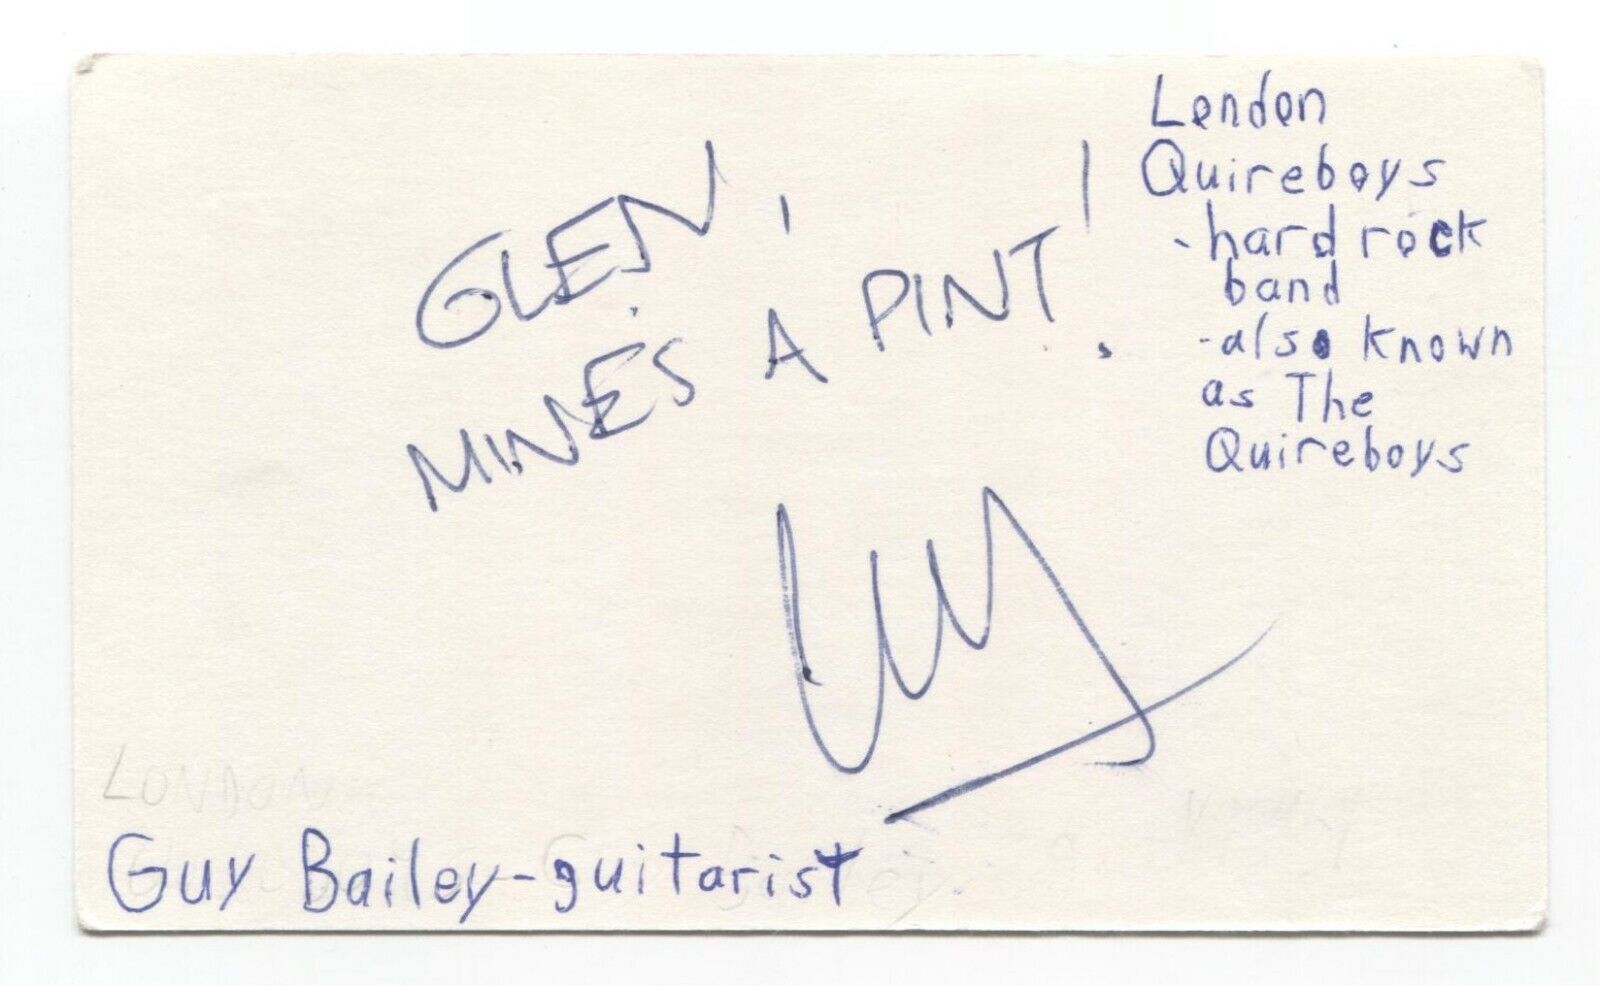 GLEN,
MINES A PINT!
London
Quireboys
- hard rock
band
- also known
as The
Quireboys
LONDON
Guy Bailey - guitarist